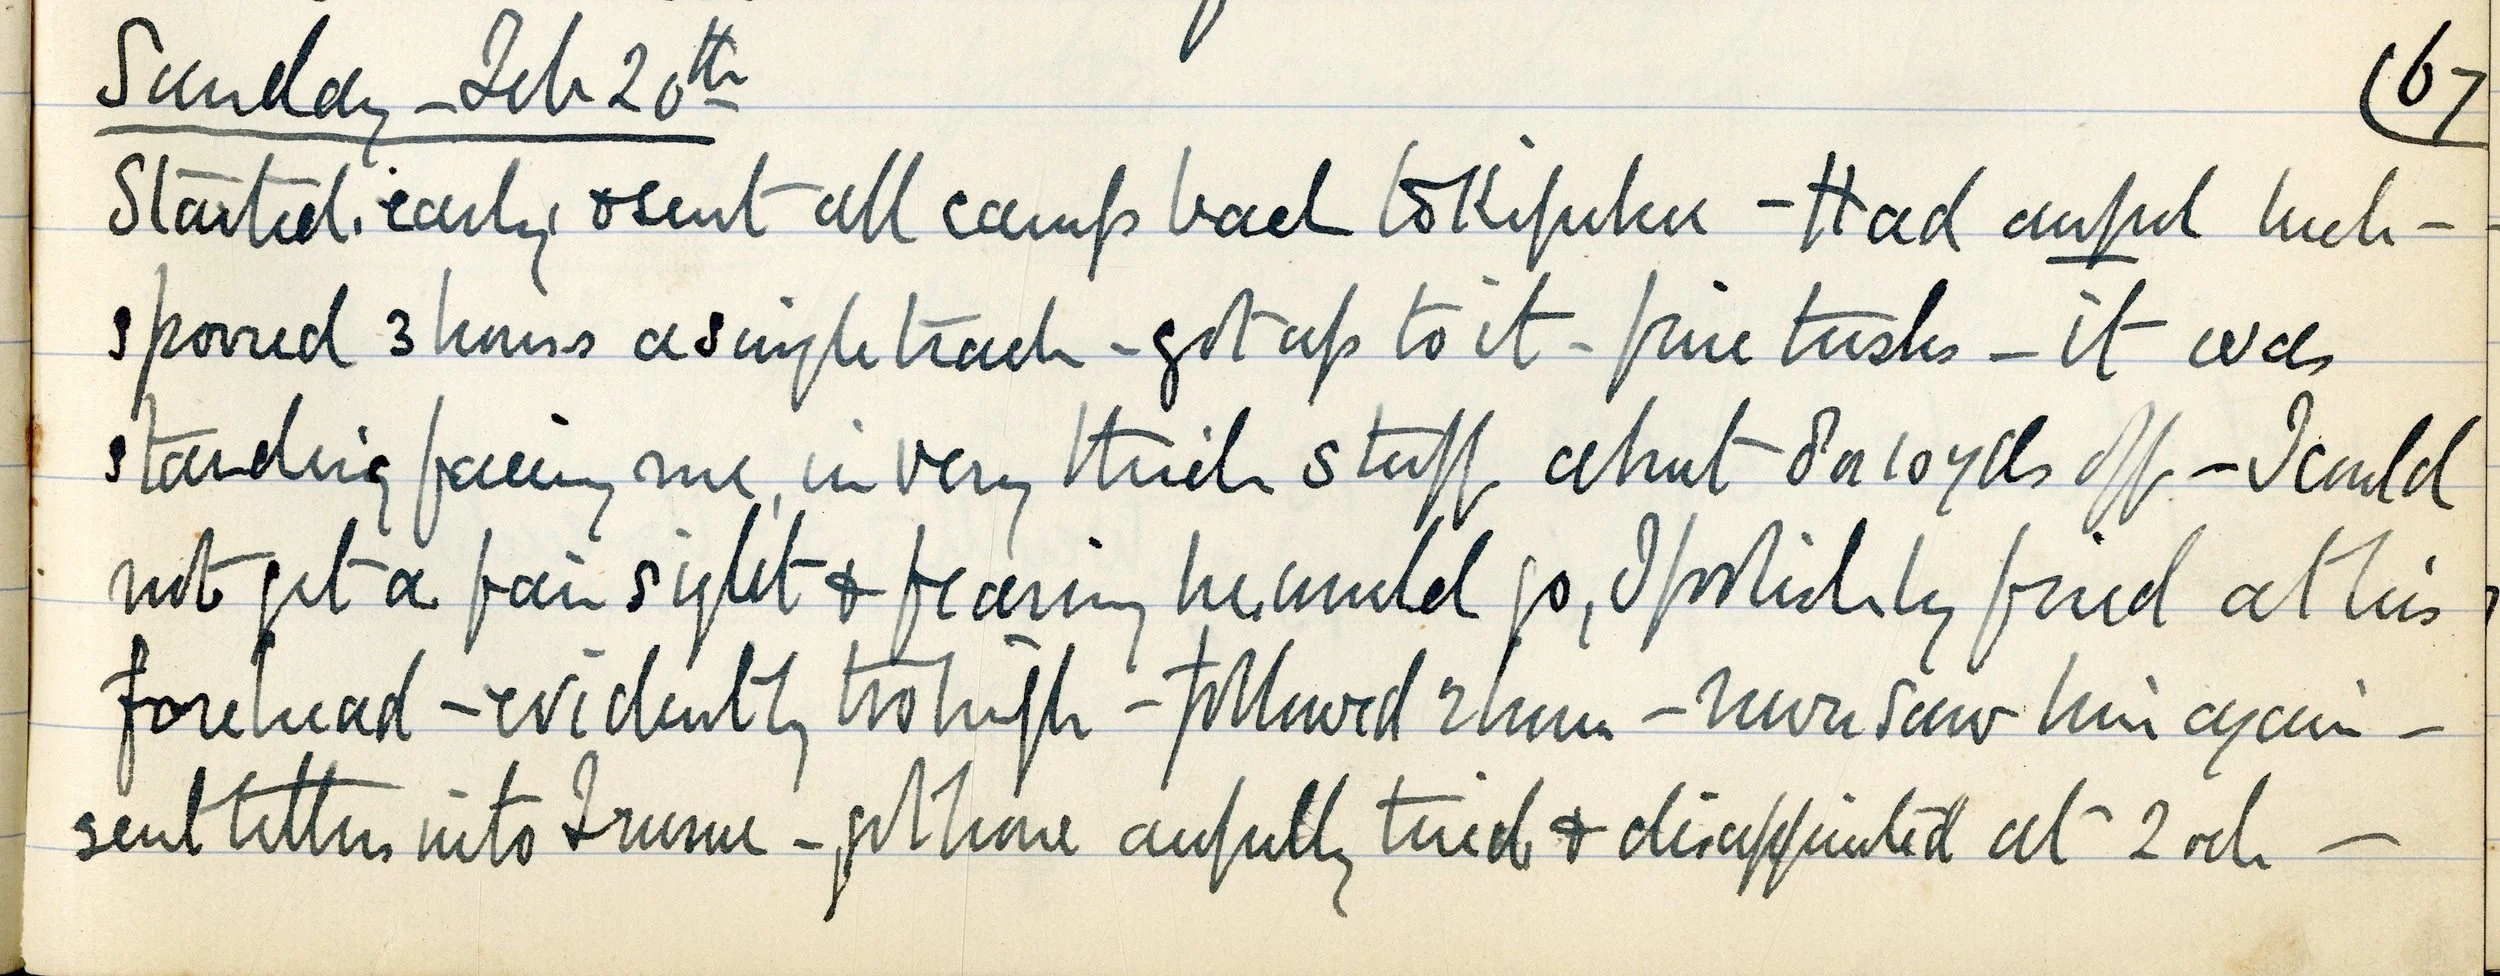 Sunday - Feb 20th
(67
Started early & sent all camp back to Kipuku - Had awful luck -
spoored 3 hours a single track - got up to it - fine tusks - it was
standing facing me, in very thick stuff about 8 or 10 yds off - I could
not get a fair sight & fearing he would go, I foolishly fired at his
forehead - evidently too high - followed 2 hours - never saw him again -
sent letters into - got home awfully tired & disappointed at 2 ock -